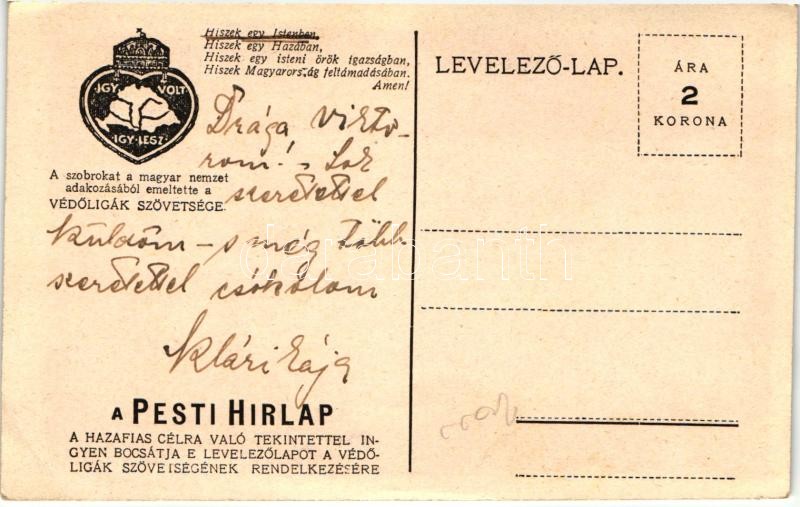 Hiszek egy Istenben,
Hiszek egy Hazában,
Hiszek egy isteni örök igazságban,
Hiszek Magyarország feltámadásában.
Amen!
IGY VOLT
IGY LESZ
A szobrokat a magyar nemzet
adakozásából emeltette a
VÉDŐLIGÁK SZÖVETSÉGE.
Drága Vikto-
rom! - Sok
szeretettel
küldöm - s még több
szeretettel csókolom
Klárikája
A PESTI HIRLAP
A HAZAFIAS CÉLRA VALÓ TEKINTETTEL IN-
GYEN BOCSÁTJA E LEVELEZŐLAPOT A VÉDŐ-
LIGÁK SZÖVETSÉGÉNEK RENDELKEZÉSÉRE
LEVELEZŐ-LAP.
ÁRA
2
KORONA
darabanth